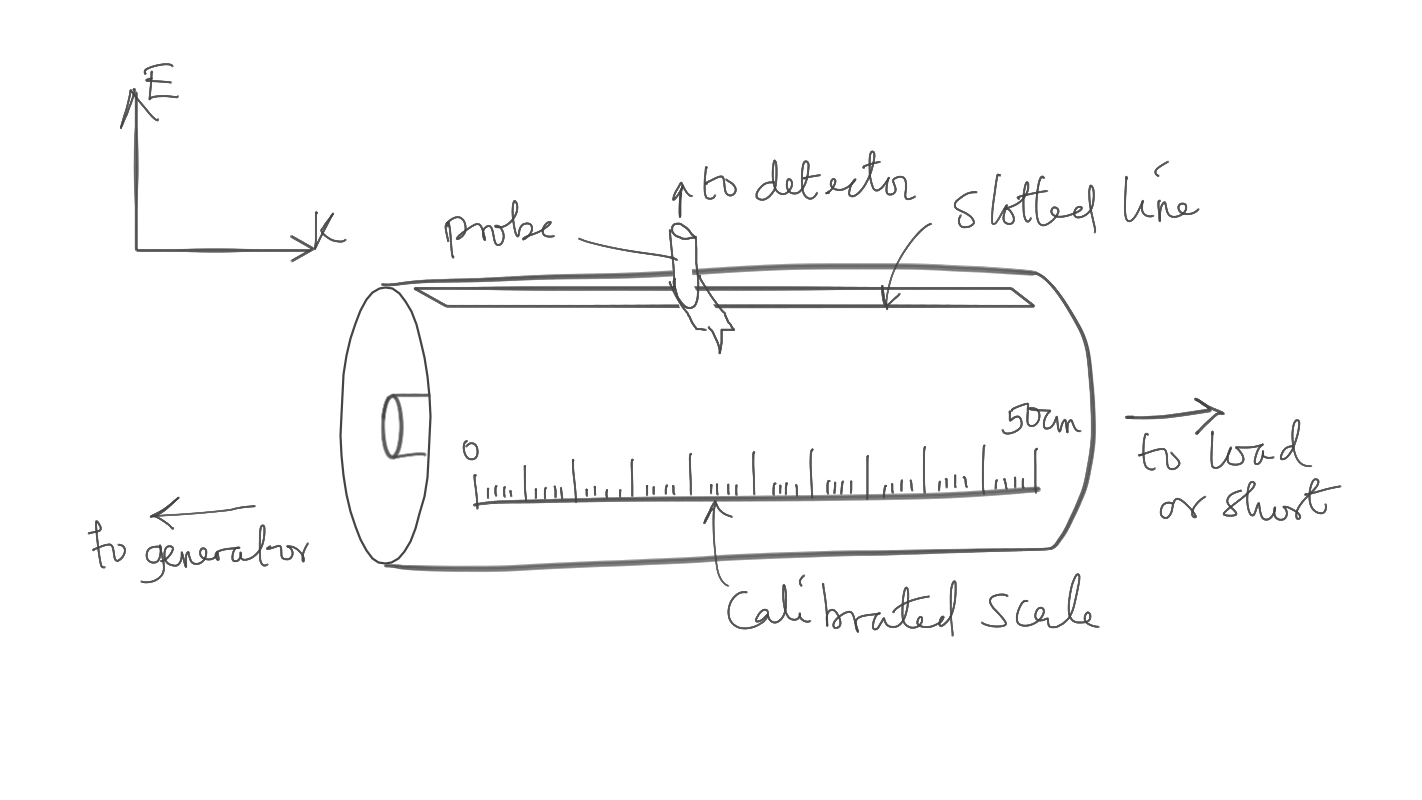 E
K
to detector
probe
slotted line
50cm
0
to load
or short
to generator
Calibrated scale